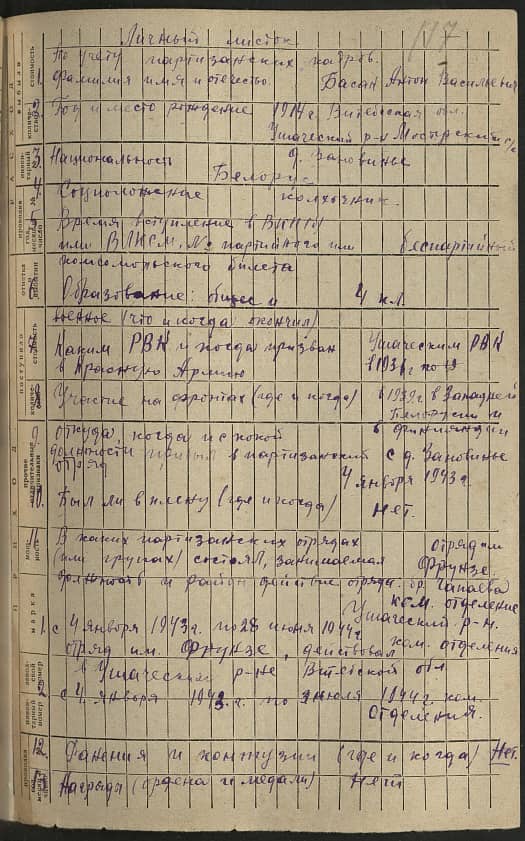 Личный листок
N 7
По учету партизанских кадров.
1 Фамилия имя и отечество. Басан Антон Васильевич
2. Год и место рождение 1914 г. Витебская обл.
Ушачский р-н
д. Зановинье
3. Национальность
Белорус
4. колхозник.
5. Время вступление в ВКП(б)
или ВЛКСМ, № партийного или беспартийный
комсомольского билета
Образование: общее и 4 кл.
военное (что и когда окончил)
Каким РВК и когда призван Ушачским РВК
в Красную Армию
Участие на фронтах (где и когда) в 1939 г. в Западней
Белорусии и
в финляндии
9. откуда, когда и с какой
должности прибыл в партизанский с д. Зановинье
отряд 4 января 1943 г.
10. Был ли в плену (где и когда) Нет.
11. В каких партизанских отрядах отряд им
(или группах) состоял, занимаемая Фрунзе
должность и район действие отряда. бр. Чапаева
ком. отделение
Ушачский р-н.
1. с 4 января 1943 г. по 28 июня 1944 г.
отряд им. Фрунзе, действовал ком. отделения
в Ушачским р-не Витебской обл.
2. с 4 января 1943 г. по июля 1944 г. ком.
Отделения.
12. Ранения и контузии (где и когда) Нет.
Награды (ордена и медали) Нет